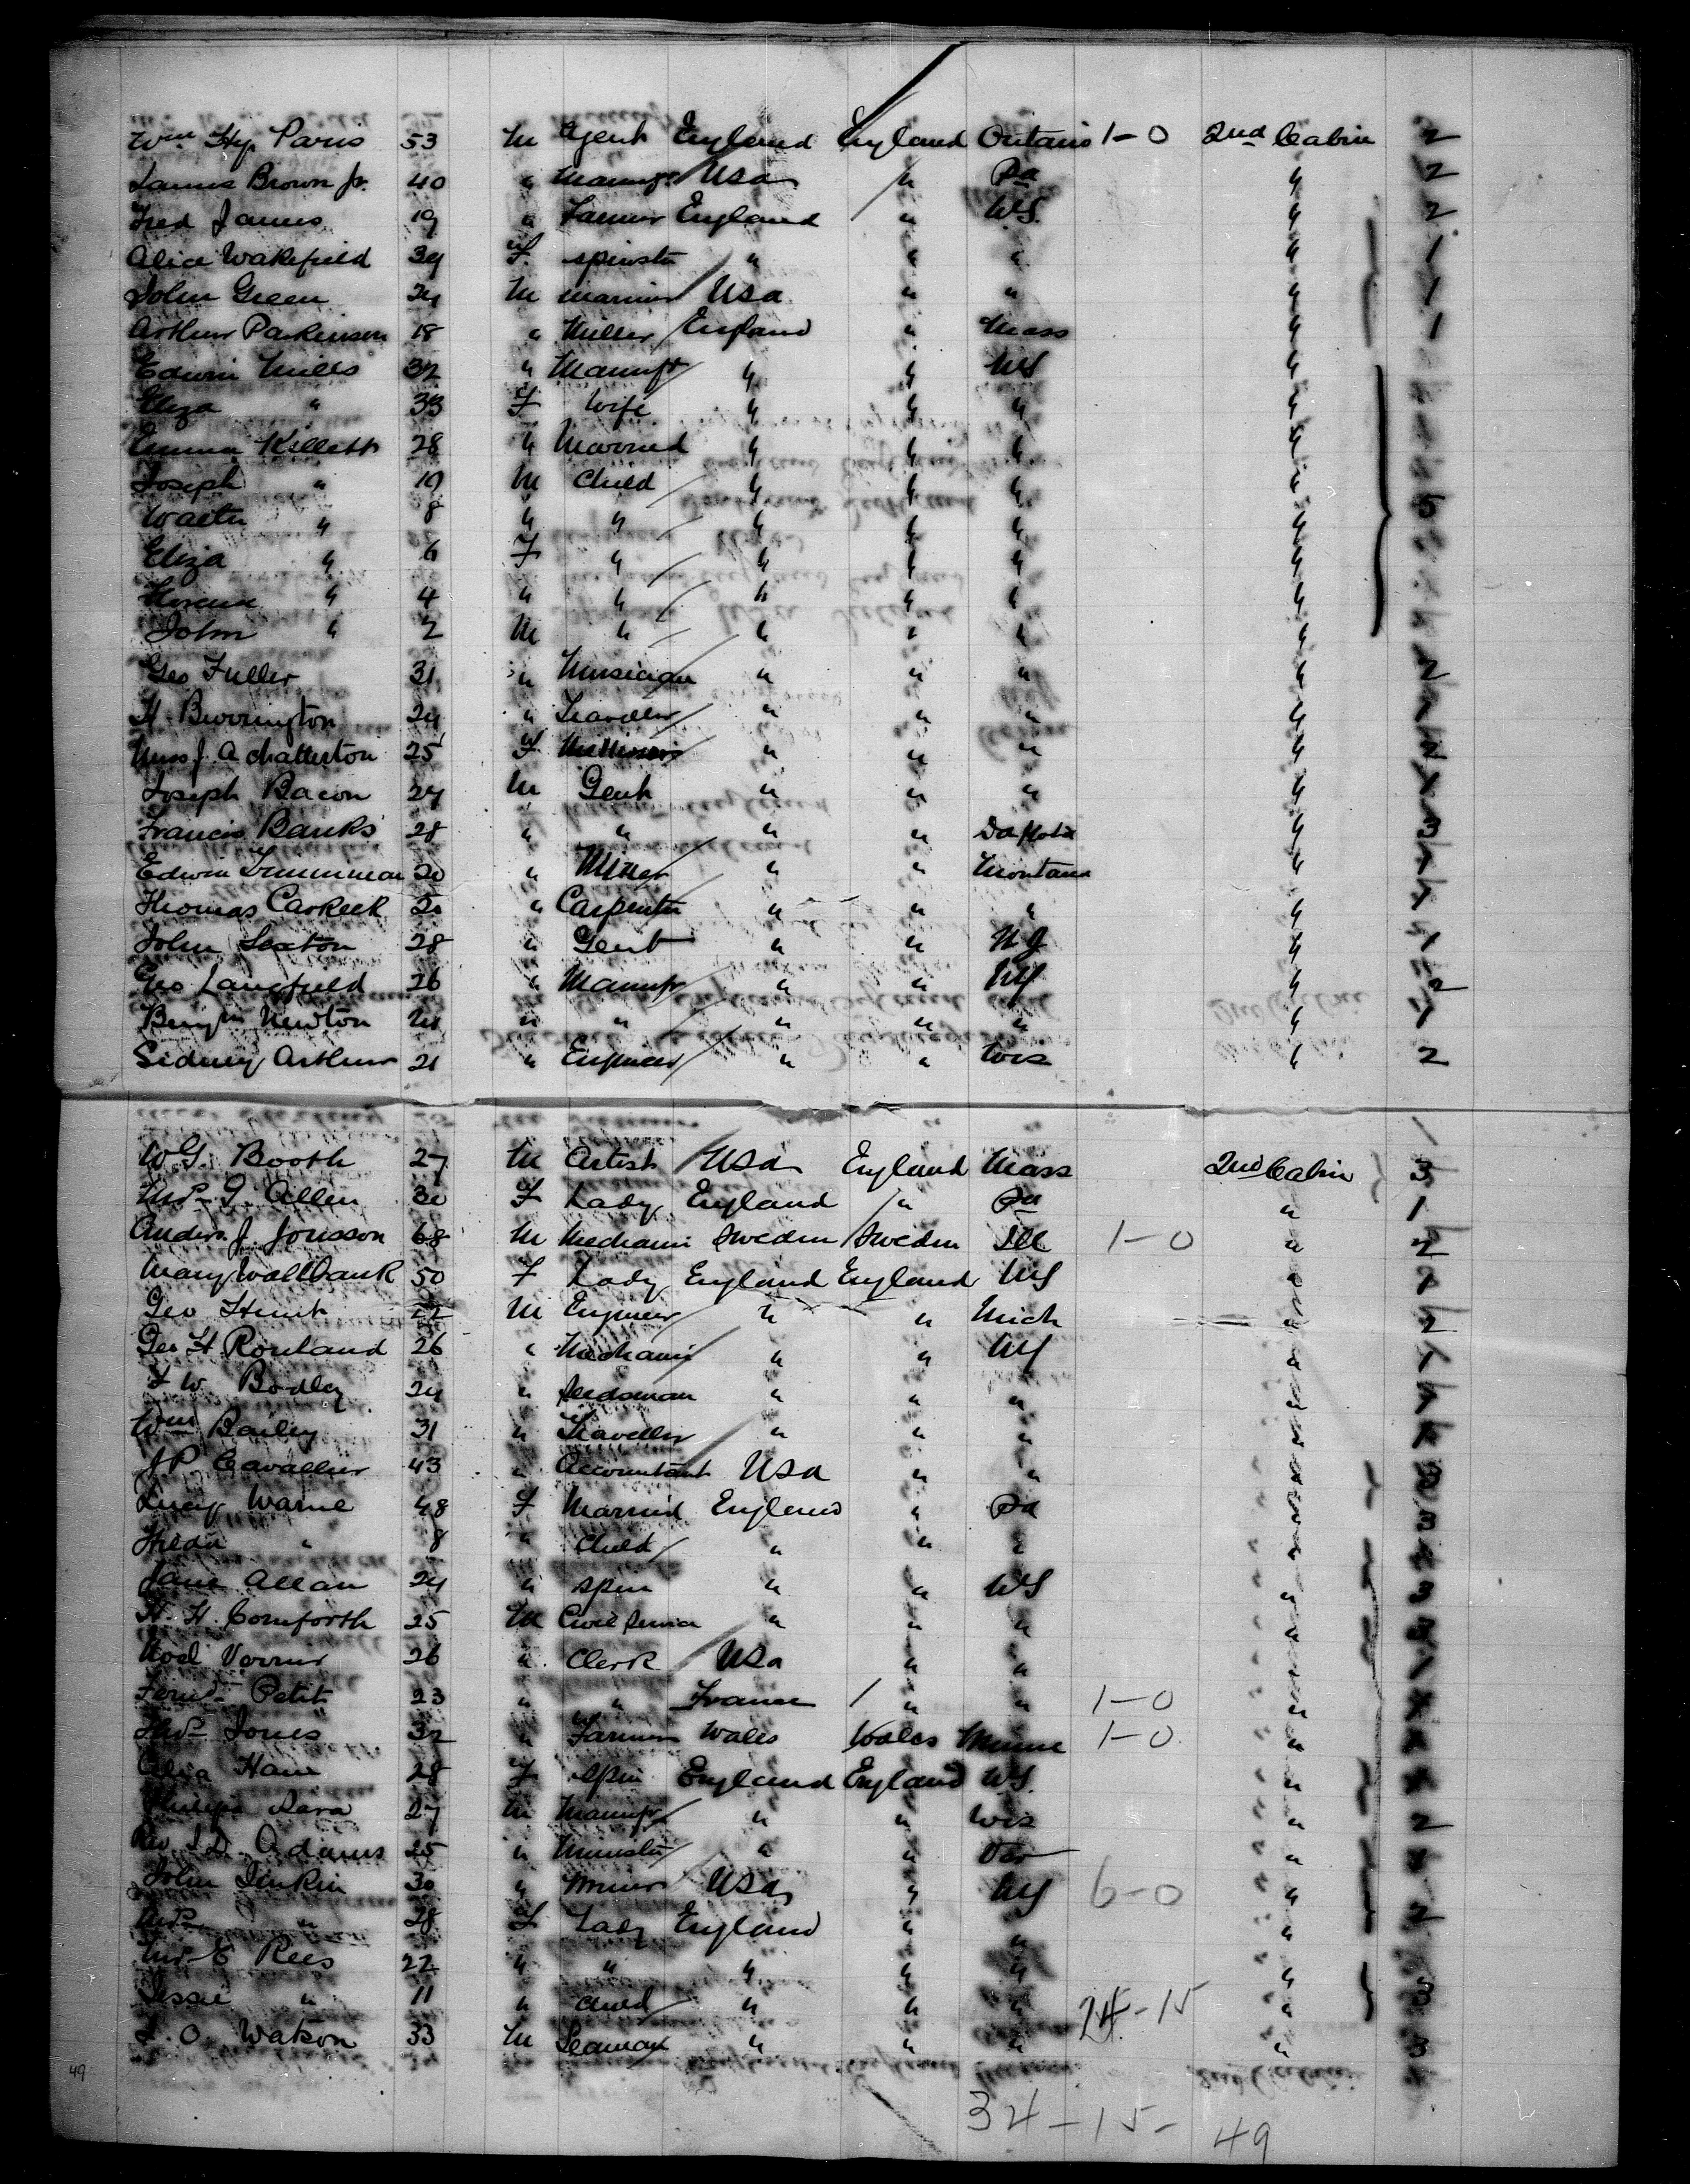 Wm Hy. Paris 53 M Gent England England Ontario 1-0 2nd Cabin 2
James Brown Jr. 40 " Manufr USA " Pa " 2
Fred James 19 " Farmer England " NY. " 2
Alice Wakefield 39 F. spinstr " " " " 1
John Green 24 M mariner USA " " " 1
Arthur Parkinson 18 " Miller England " Mass " 1
Edwin Mills 32 " Manufr " " NY "
Eliza " 33 F Wife " " " "
Emma Killett 28 " Married " " " "
Joseph " 10 M Child " " " "
Walter " 8 " " " " " " 5
Eliza " 6 F " " " " "
Florence " 4 " " " " " "
John " 2 M " " " " "
Geo Fuller 31 " Musician " " " " 2
H Burrington 24 " " " " "
Miss J. A Chatterton 25 F " " " " 2
Joseph Bacon 27 M Gent " " " "
Francis Banks 28 " " " " Dakota " 3
Edwin 20 " Miner " " Montana "
Thomas Carkeek 20 " Carpenter " " " "
John Sexton 28 " Gent " " NJ " 1
Geo Langfield 26 " Manufr " " NY " 2
Benjn Newton " " " " " " 1
Sidney Arthur 21 " Engineer " " Wis " 2
W G. Booth 27 M Artist USA England Mass 2nd Cabin 3
Mrs G. Allen 30 F Lady England " Pa " 1
Anders. J. Jonsson 68 M Mechanic Sweden Sweden Ill 1-0 " 2
Mary Wallbank 50 F Lady England England NY " 1
Geo Hunt 22 M Engineer " " Mich " 2
Geo H Rowland 26 " Mechanic " " NY " 1
F W Bodley 24 " Seedsman " " " "
Wm Bailey 31 " Traveller " " " "
J P. Cavallier 43 " Accountant USA " " " 3
Lucy Warne 48 F Married England " Pa " 3
Hilda " 8 " Child " " " "
Jane Allan 24 " spin " " NY " 3
H. H. Cornforth 25 M Civil Service " " " " 3
Noel 26 " Clerk USA " " " 1
Petit 23 " " France " " 1-0 "
Jones 32 " Farmer Wales Wales Minne 1-0 "
28 F Spin England England NY. "
Philip 27 M Manufr " " Wis " 2
Rev Adams 25 " Minister " " "
John Jenkin 30 " Miner USA " NY 6-0 "
Mrs " 28 F Lady England " " " 2
Mrs E Rees 22 " " " " " "
Jessie " 11 " Child " " " 24-15 " 3
Watson 33 M Seaman " " " " 3
34-15- 49
49